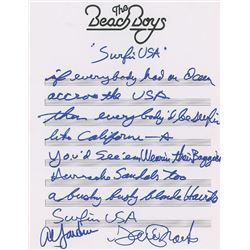 The
Beach Boys
"Surfin USA"
if everybody had an Ocean
accross the USA
then everybody'd be surfin
like Californi-A
You'd See'em Wearin their Baggies
Huarache Sandals too
a bushy bushy blonde Hairdo
Surfin USA
Al Jardine